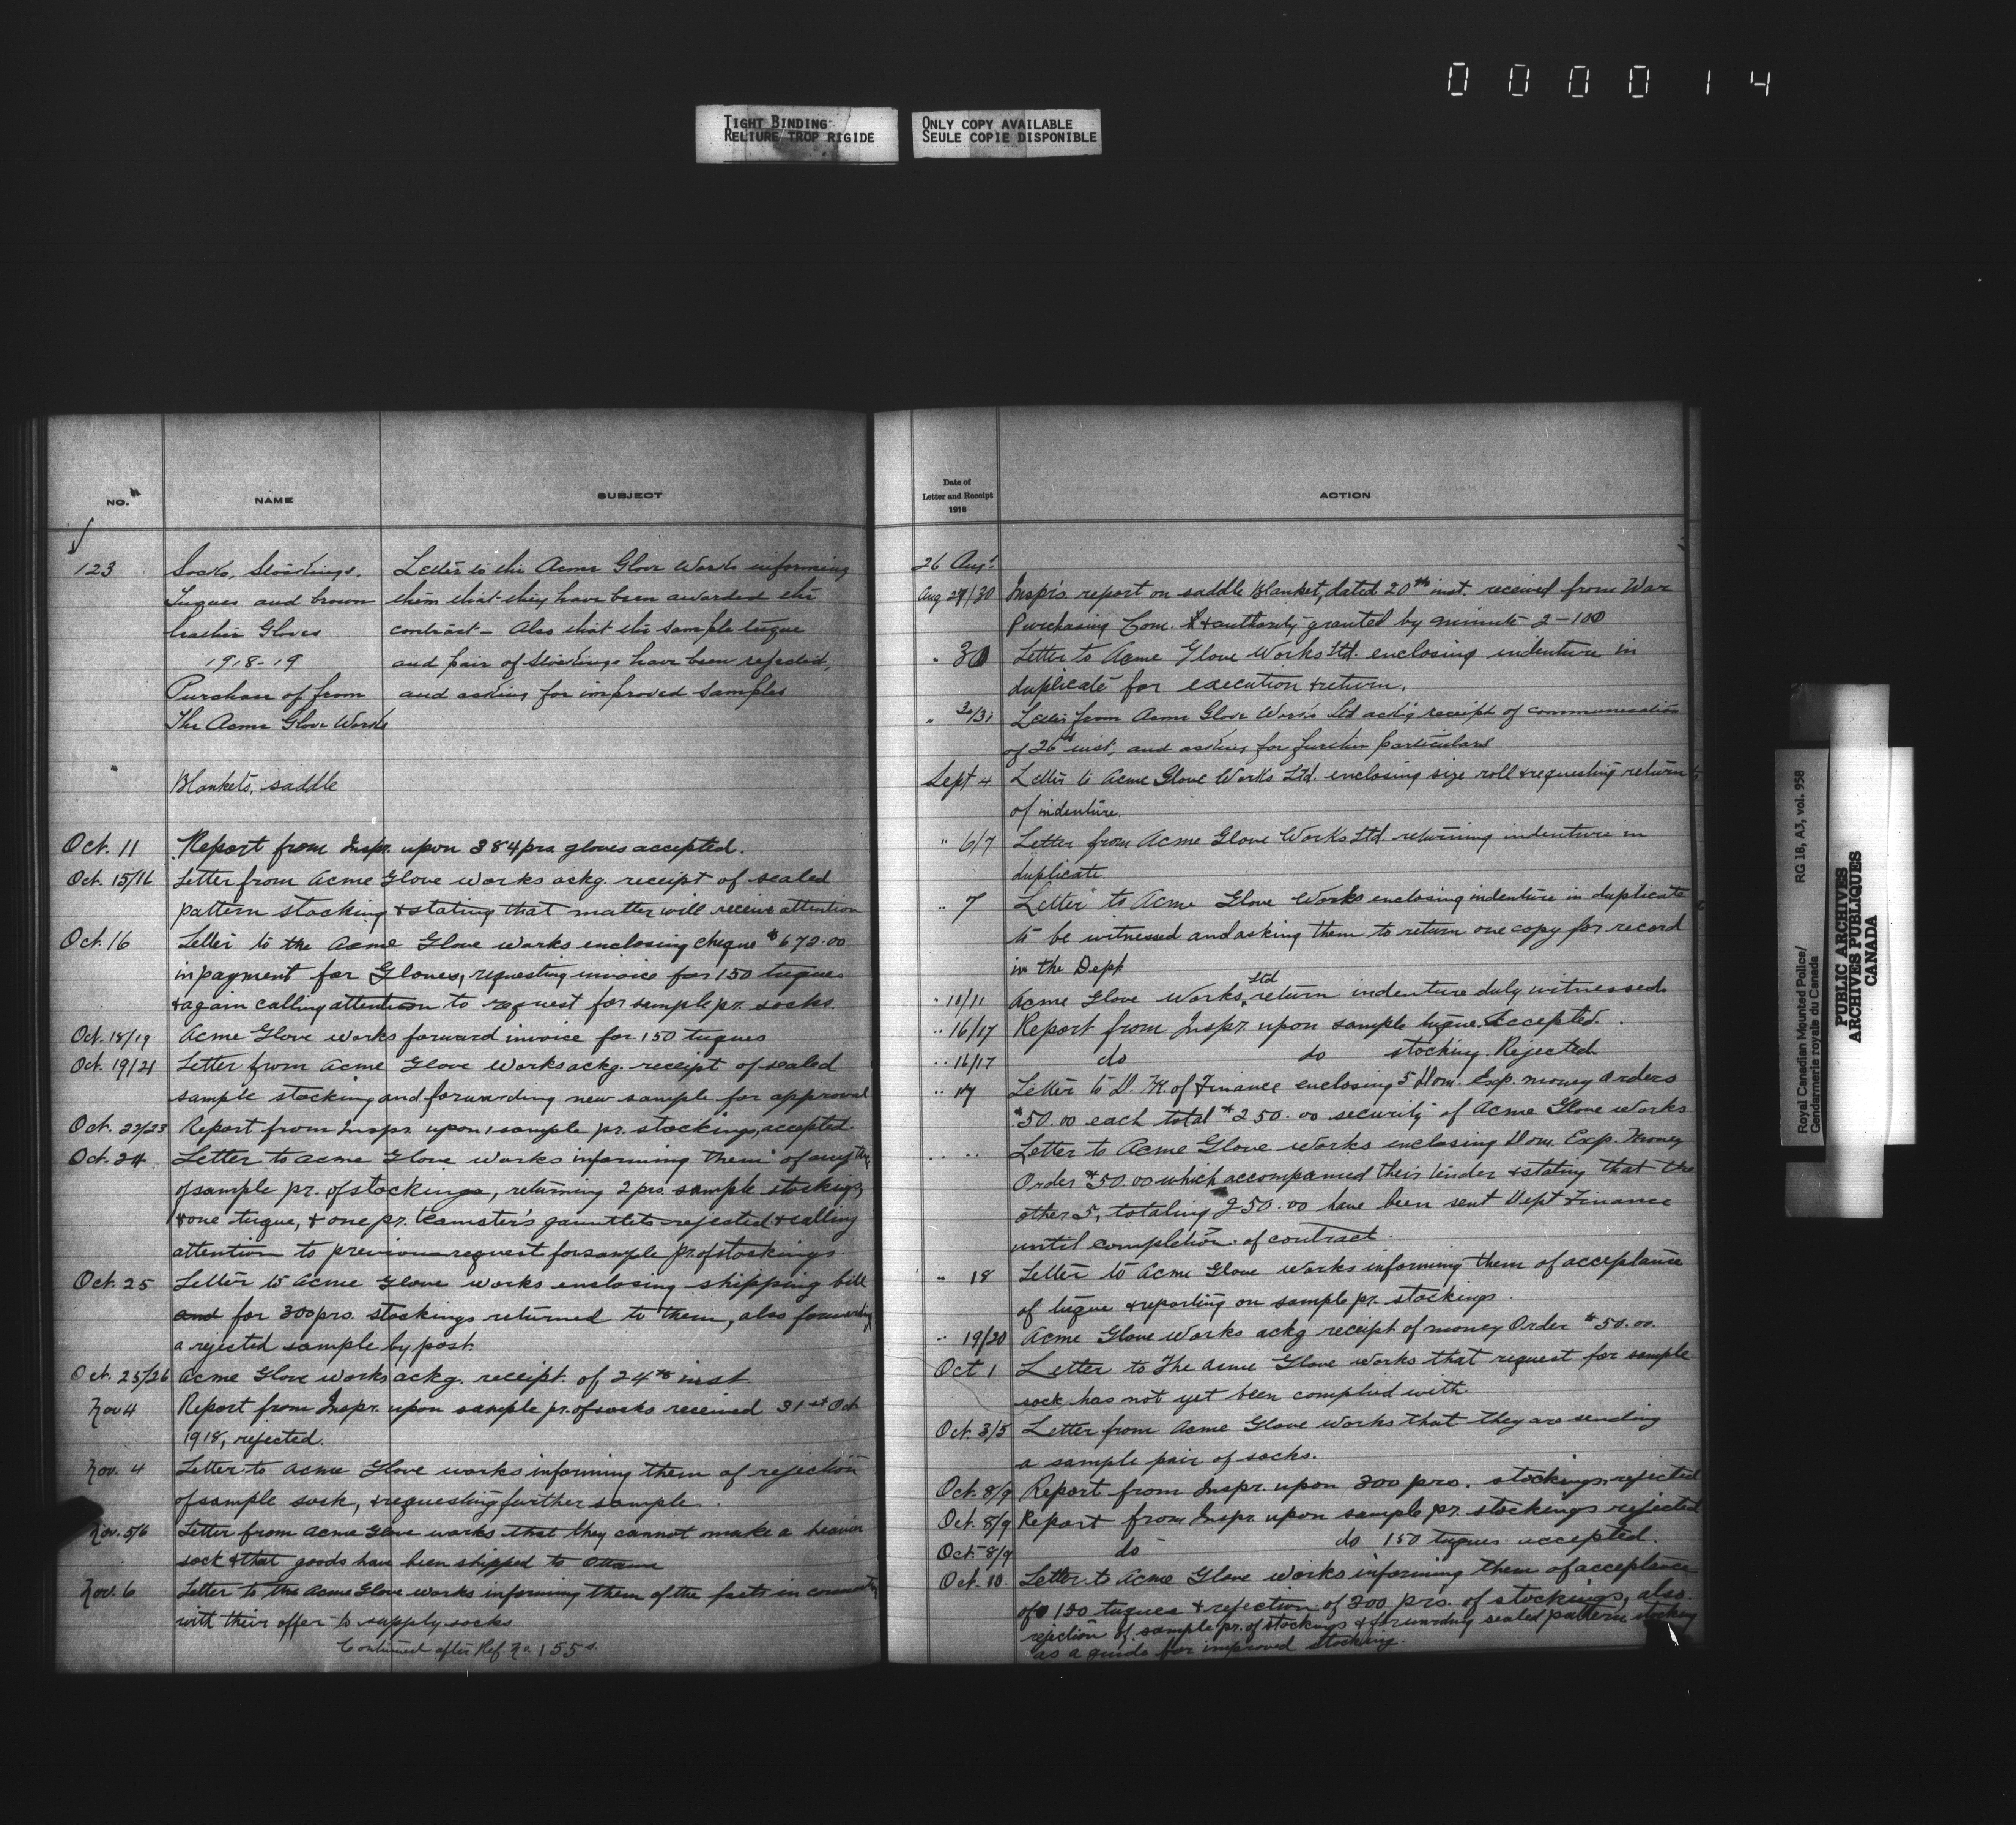 000014
TIGHT BINDING
RELIURE TROP RIGIDE
ONLY COPY AVAILABLE
SEULE COPIE DISPONIBLE
NO. NAME SUBJECT
123 Socks, Stockings, Letter to the Acme Glove Works informing
Tuques and brown them that they have been awarded the
leather Gloves contract - Also that the sample tuque
1918-19 and pair of stockings have been rejected,
Purchase of from and asking for improved samples
The Acme Glove Works
Blankets, saddle
Oct. 11 Report from Inspr. upon 384 prs gloves accepted.
Oct. 15/16 Letter from Acme Glove Works ackg. receipt of sealed
pattern stocking & stating that matter will receive attention
Oct. 16 Letter to the Acme Glove Works enclosing cheque $672.00
in payment for Gloves, requesting invoice for 150 tuques
& again calling attention to request for sample pr. socks.
Oct. 18/19 Acme Glove Works forward invoice for 150 tuques
Oct. 19/21 Letter from Acme Glove Works ackg. receipt of sealed
sample stocking and forwarding new sample for approval
Oct. 22/23 Report from Inspr. upon 1 sample pr. stockings, accepted.
Oct. 24 Letter to Acme Glove Works informing them of
of sample pr. of stockings, returning 2 prs. sample stockings,
& one tuque, & one pr. teamster's gauntlets rejected & calling
attention to previous request for sample pr. of stockings
Oct. 25 Letter to Acme Glove Works enclosing shipping bill
and for 300 prs. stockings returned to them, also forwarding
a rejected sample by post.
Oct. 25/26 Acme Glove Works ackg. receipt of 24th inst
Nov 4 Report from Inspr. upon sample pr. of socks received 31st Oct
1918, rejected.
Nov. 4 Letter to Acme Glove Works informing them of rejection
of sample sock, & requesting further sample.
Nov. 5/6 Letter from Acme Glove Works that they cannot make a heavier
sock & that goods have been shipped to Ottawa
Nov. 6 Letter to the Acme Glove Works informing them of the facts in connection
with their offer to supply socks
Continued after Ref. No. 155
Date of
Letter and Receipt
1918
ACTION
26 Aug.
Aug 29/30 Inspr's. report on saddle Blanket, dated 20th inst. received from War
Purchasing Com. & authority granted by minute 2-100
" 30 Letter to Acme Glove Works Ltd. enclosing indenture in
duplicate for execution & return.
" 30/31 Letter from Acme Glove Works Ltd ack'g receipt of communication
of 26th inst, and asking for further particulars
Sept 4 Letter to Acme Glove Works Ltd. enclosing size roll & requesting return
of indenture.
" 6/7 Letter from Acme Glove Works Ltd. returning indenture in
duplicate
" 7 Letter to Acme Glove Works enclosing indenture in duplicate
to be witnessed and asking them to return one copy for record
in the Dept
" 10/11 Acme Glove Works Ltd return indenture duly witnessed
" 16/17 Report from Inspr. upon sample tuque. Accepted.
" 16/17 do do stocking. Rejected
" 17 Letter to D. M. of Finance enclosing 5 Dom. Exp. money orders
$50.00 each total $250.00 security of Acme Glove Works
" " Letter to Acme Glove Works enclosing Dom. Exp. Money
Order $50.00 which accompanied their tender & stating that the
other 5, totaling 250.00 have been sent Dept Finance
until completion of contract.
" 18 Letter to Acme Glove Works informing them of acceptance
of tuque & reporting on sample pr. stockings.
" 19/20 Acme Glove Works ackg receipt of money Order $50.00.
Oct 1 Letter to The Acme Glove Works that request for sample
sock has not yet been complied with.
Oct. 3/5 Letter from Acme Glove Works that they are sending
a sample pair of socks.
Oct. 8/9 Report from Inspr. upon 300 prs. stockings, rejected
Oct. 8/9 Report from Inspr. upon sample pr. stockings rejected
Oct. 8/9 do do 150 tuques accepted.
Oct. 10. Letter to Acme Glove Works informing them of acceptance
of 150 tuques & rejection of 300 prs. of stockings, also
rejection of sample pr. of stockings & forwarding sealed pattern stocking
as a guide for improved stocking.
Royal Canadian Mounted Police/
Gendarmerie royale du Canada
RG 18, A3, vol. 958
PUBLIC ARCHIVES
ARCHIVES PUBLIQUES
CANADA